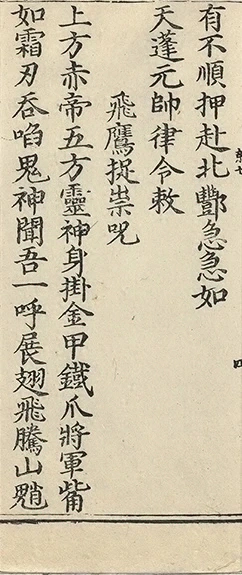 有不順押赴北酆急急如
天蓬元帥律令敕
飛鷹捉祟咒
上方赤帝五方靈神身掛金甲鐵爪將軍觜
如霜刃吞啗鬼神聞吾一呼展翅飛騰山魈